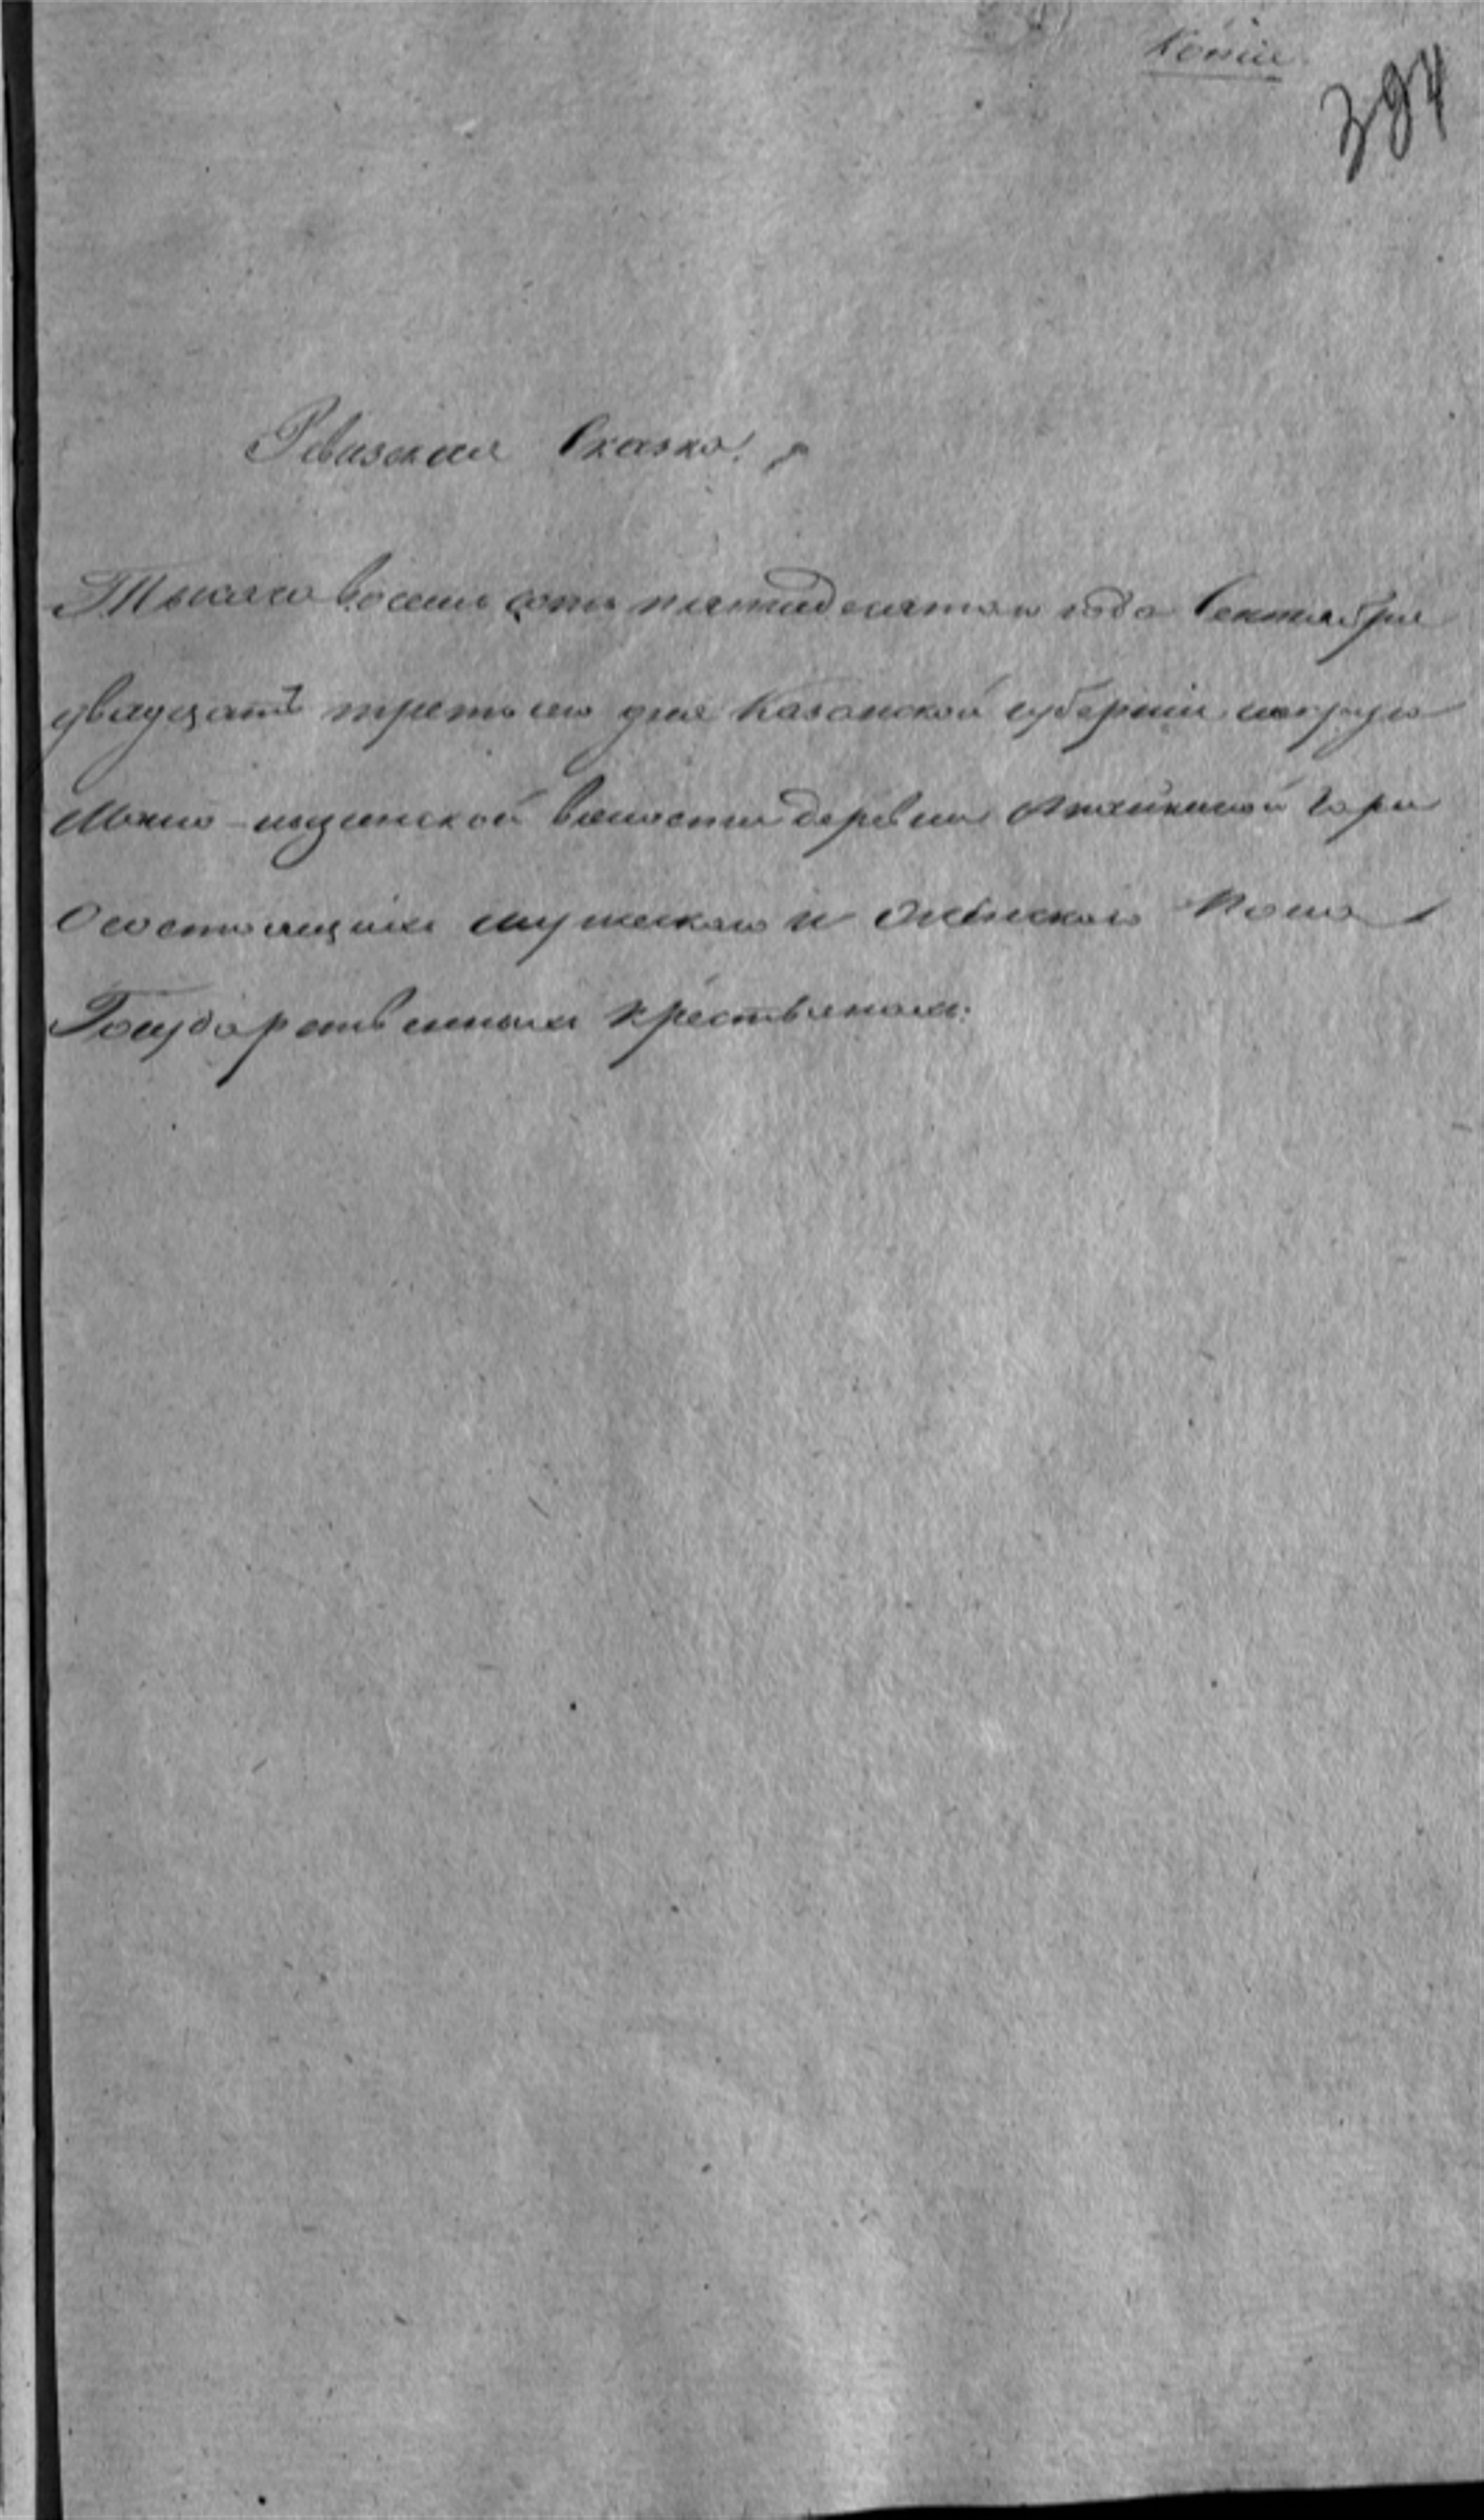 Копiя
394
Ревизская Сказка.
Тысяча восемь сотъ пятидесятаго года Сентября
двадцать третьяго дня Казанской губернiи
волости деревни горы
О состоящихъ мужескаго и женскаго пола
Государственныхъ крестьянахъ.